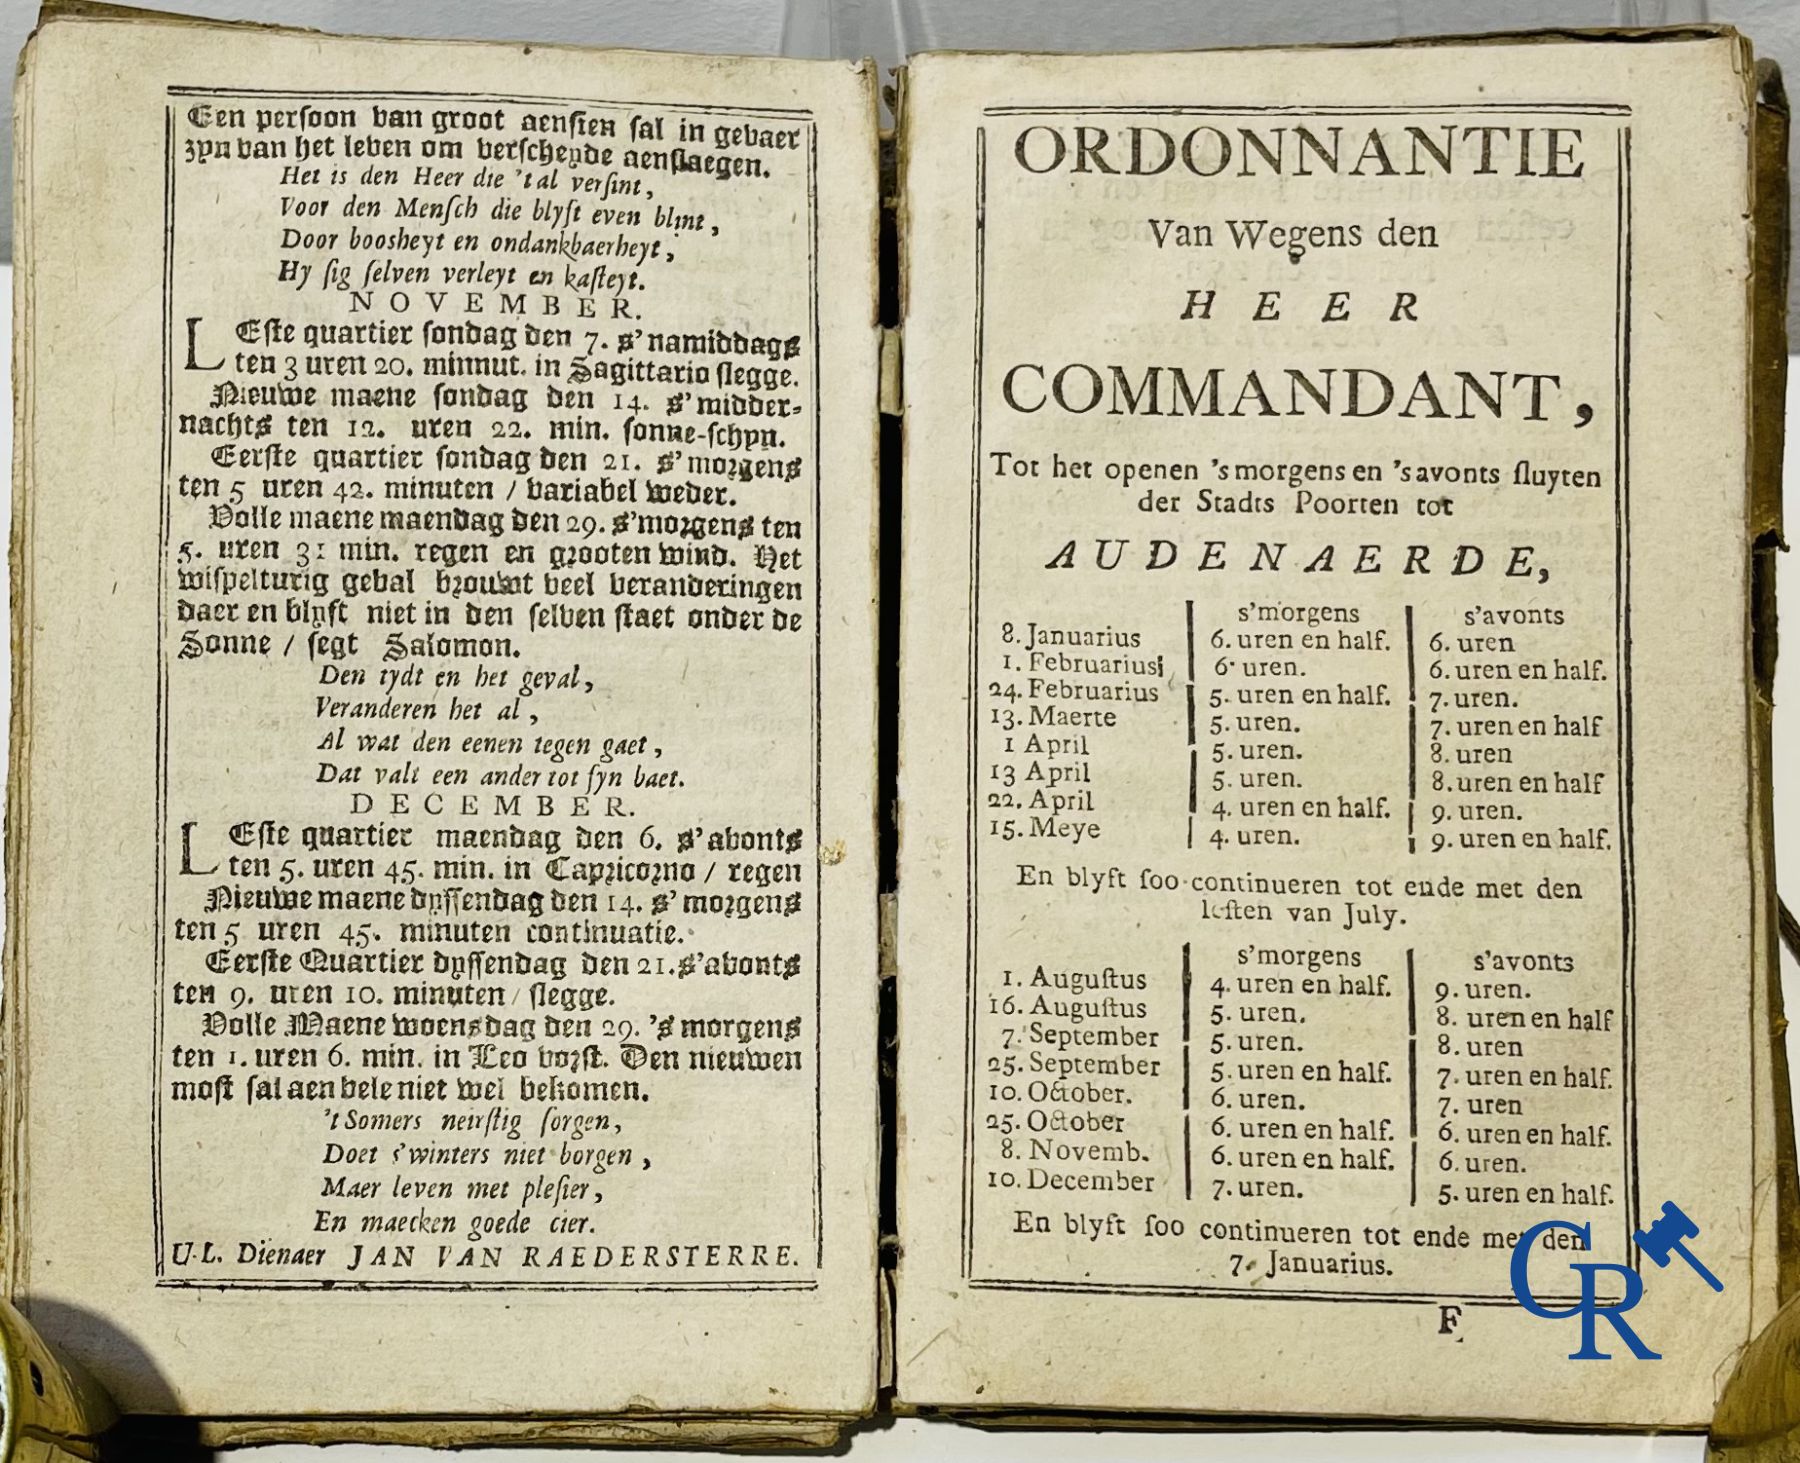 Een persoon van groot aensien sal in gevaer
zyn van het leven om verscheyde aenslaegen.
Het is den Heer die 't al versint,
Voor den Mensch die blyft even blint,
Door boosheyt en ondankbaerheyt,
Hy sig selven verleyt en kasteyt.
NOVEMBER.
LEste quartier sondag den 7. s'namiddags
ten 3 uren 20. minnut. in Sagittario slegge.
Nieuwe maene sondag den 14. s'midder-
nachts ten 12. uren 22. min. sonne-schyn.
Eerste quartier sondag den 21. s'morgens
ten 5 uren 42. minuten / variabel weder.
Volle maene maendag den 29. s'morgens ten
5. uren 31 min. regen en grooten wind. Het
wispelturig geval brouwt veel veranderingen
daer en blyft niet in den selven staet onder de
Sonne / segt Salomon.
Den tydt en het geval,
Veranderen het al,
Al wat den eenen tegen gaet,
Dat valt een ander tot syn baet.
DECEMBER.
LEste quartier maendag den 6. s'avonts
ten 5. uren 45. min. in Capricorno / regen
Nieuwe maene dyssendag den 14. s'morgens
ten 5 uren 45. minuten continuatie.
Eerste Quartier dyssendag den 21. s'avonts
ten 9. uren 10. minuten / slegge.
Volle Maene woensdag den 29. 's morgens
ten 1. uren 6. min. in Leo vorst. Den nieuwen
most sal aen vele niet wel bekomen.
't Somers neirstig sorgen,
Doet s'winters niet borgen,
Maer leven met plesier,
En maecken goede cier.
U.L. Dienaer JAN VAN RAEDERSTERRE.
ORDONNANTIE
Van Wegens den
HEER
COMMANDANT,
Tot het openen 's morgens en 's avonts sluyten
der Stadts Poorten tot
AUDENAERDE,
s'morgens s'avonts
8. Januarius 6. uren en half. 6. uren
1. Februarius 6. uren. 6. uren en half.
24. Februarius 5. uren en half. 7. uren.
13. Maerte 5. uren. 7. uren en half
1 April 5. uren. 8. uren
13 April 5. uren. 8. uren en half
22. April 4. uren en half. 9. uren.
15. Meye 4. uren. 9. uren en half.
En blyft soo continueren tot ende met den
lesten van July.
s'morgens s'avonts
1. Augustus 4. uren en half. 9. uren.
16. Augustus 5. uren. 8. uren en half
7. September 5. uren. 8. uren
25. September 5. uren en half. 7. uren en half.
10. October. 6. uren. 7. uren
25. October 6. uren en half. 6. uren en half.
8. Novemb. 6. uren en half. 6. uren.
10. December 7. uren. 5. uren en half.
En blyft soo continueren tot ende met den
7. Januarius.
F
GR